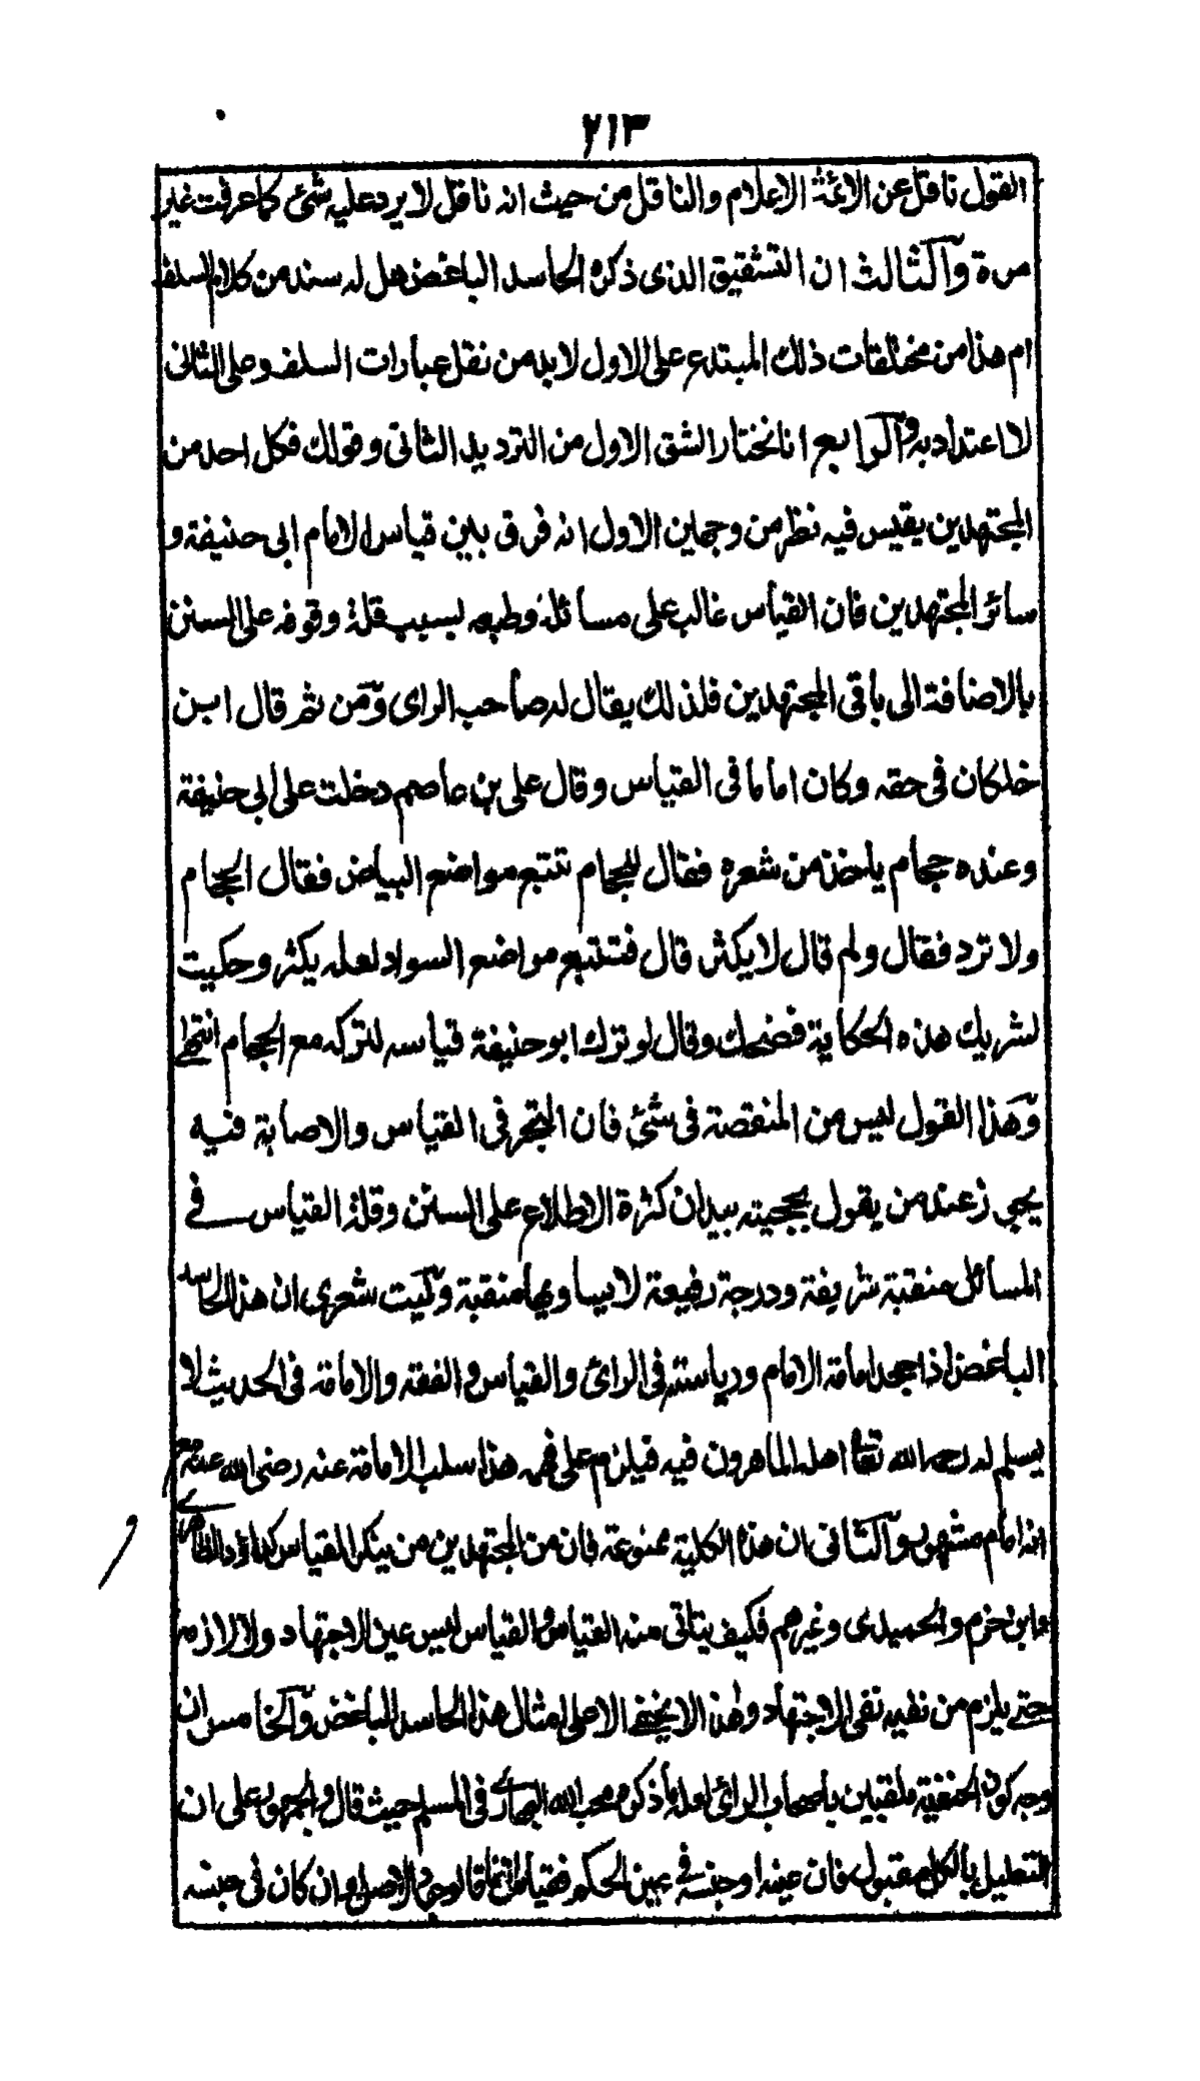 ٢١٣
القول ناقل عن الائمة الاعلام والناقل من حيث انه ناقل لا يرد عليه شئ كما عرفت غير
مرة والثالث ان التشقيق الذى ذكره الحاسد الباغض هل له سند من كلام السلف
ام هذا من مختلقات ذلك المبتدع على الاول لابد من نقل عبارات السلف وعلى الثانى
لا اعتداد به والرابع انا نختار الشق الاول من الترديد الثانى وقولك فكل احد من
المجتهدين يقيس فيه نظر من وجهين الاول انه فرق بين قياس الامام ابى حنيفة و
سائر المجتهدين فان القياس غالب على مسائله وطبعه بسبب قلة وقوفه على السنن
بالاضافة الى باقى المجتهدين فلذلك يقال له صاحب الراى ومن ثم قال ابن
خلكان فى حقه وكان اماما فى القياس وقال على بن عاصم دخلت على ابى حنيفة
وعنده حجام ياخذ من شعره فقال للحجام تتبع مواضع البياض فقال الحجام
ولا تزد فقال ولم قال لا يكثر قال فتتبع مواضع السواد لعله يكثر وحكيت
لشريك هذه الحكاية فضحك وقال لو ترك ابو حنيفة قياسه لتركه مع الحجام انتهى
وهذا القول ليس من المنقصة فى شئ فان التبحر فى القياس والاصابة فيه
يجوز عند من يقول بحجيته بيد ان كثرة الاطلاع على السنن وقلة القياس فى
المسائل منقبة شريفة ودرجة رفيعة لا يساويها منقبة وليت شعرى ان هذا الحاسد
الباغض اذا جحد امامة الامام ورياسته فى الرائ والقياس و الفقه والامامة فى الحديث لا
يسلم له رحمه الله تعالى اهله الماهرون فيه فيلزم على فهمه هذا سلب الامامة عنه رضى الله عنه مع
انه امام مشهور والثانى ان هذه الكلية ممنوعة فان من المجتهدين من ينكر القياس كداؤد الظاهرى
وابن حزم والحميدى وغيرهم فكيف يتاتى منه القياس والقياس ليس عين الاجتهاد ولا لازمه
حتى يلزم من نفيه نفى الاجتهاد وهذا لا يخفى الا على امثال هذا الحاسد الباغض والخامس ان
وجه كون الحنفية ملقبين باصحاب الرائ لعله ما ذكره محب الله البهارى فى المسلم حيث قال والجمهور على ان
التعليل بالكل مقبول فان عينه او جنسه فى عين الحكم فقياس اتفاقا لوجود الاصل وان كان فى جنسه